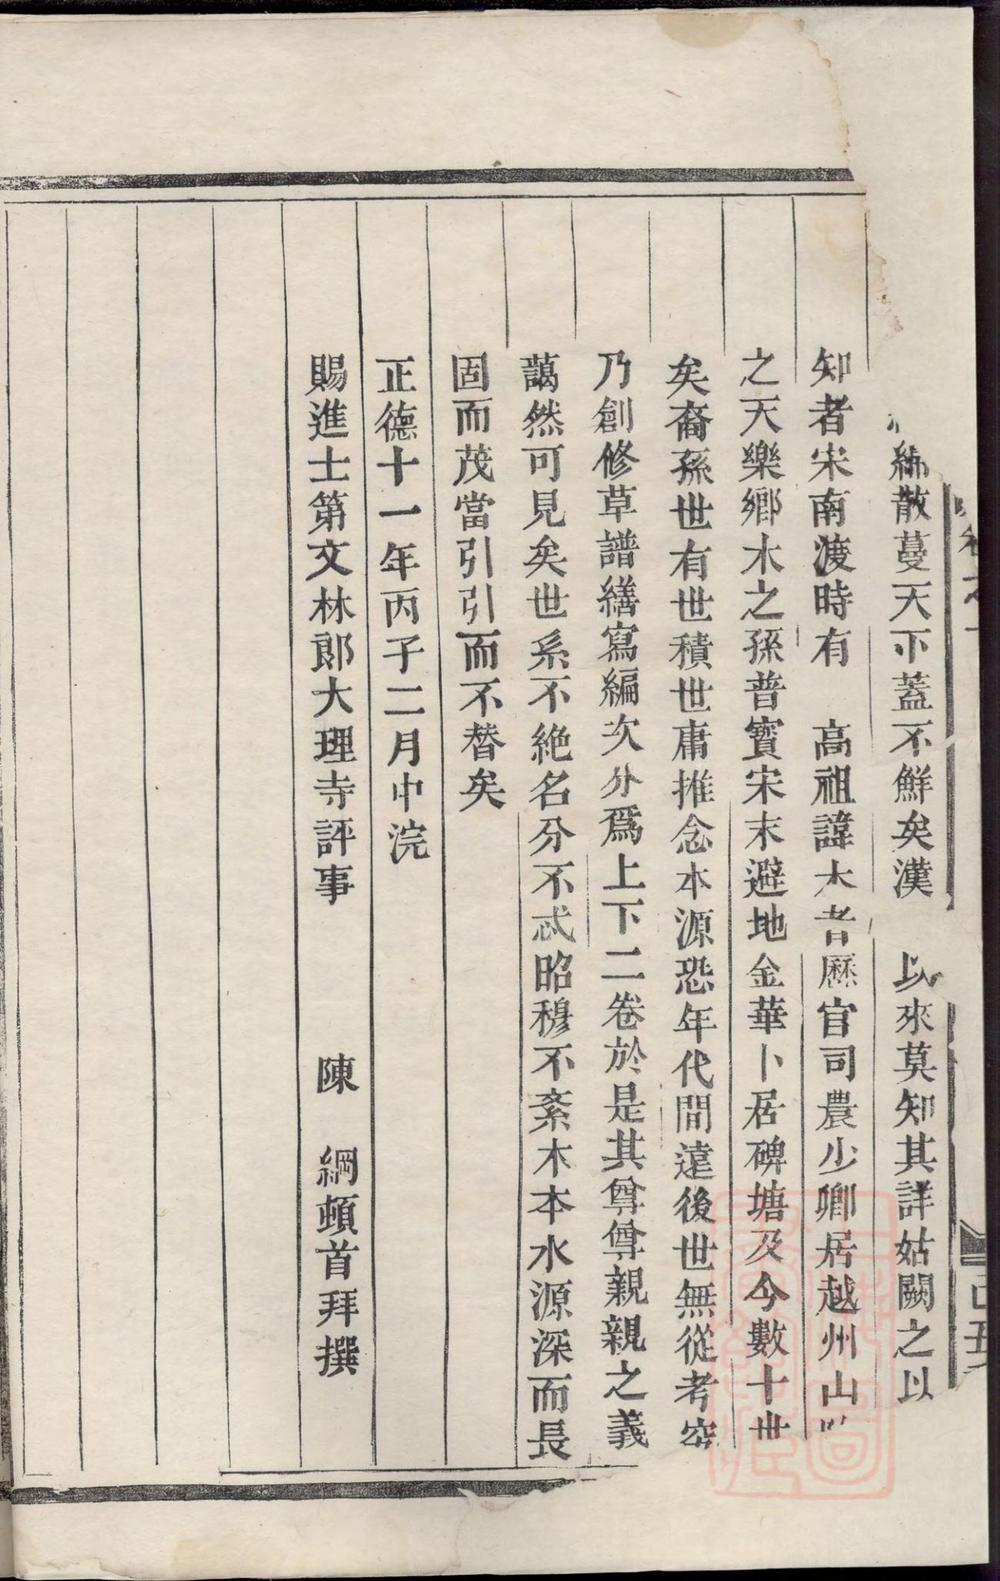 散蔓天下蓋不鮮矣漢 以來莫知其詳姑闕之以
知者宋南渡時有 高祖諱木者歷官司農少卿居越州山
之天樂鄉木之孫普寳宋末避地金華卜居碑塘及今數十世
矣裔孫世有世積世庸推念本源恐年代間遠後世無從考究
乃創修草譜繕寫編次分爲上下二卷於是其尊尊親親之義
藹然可見矣世系不絶名分不忒昭穆不紊木本水源深而長
固而茂當引引而不替矣
正德十一年丙子二月中浣
賜進士第文林郎大理寺評事 陳 綱頓首拜撰